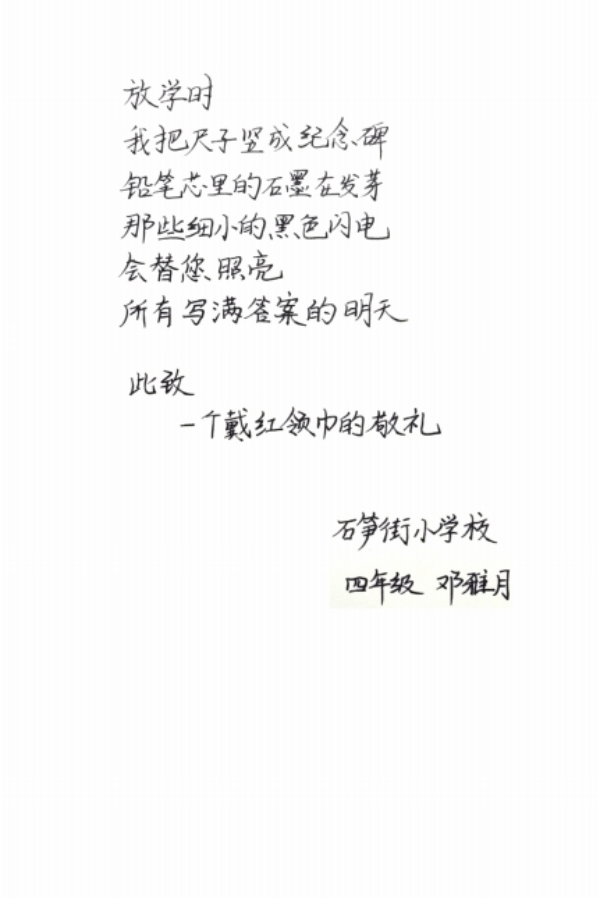 放学时
我把尺子竖成纪念碑
铅笔芯里的石墨在发芽
那些细小的黑色闪电
会替您照亮
所有写满答案的明天
此致
一个戴红领巾的敬礼
石笋街小学校
四年级 邓雅月